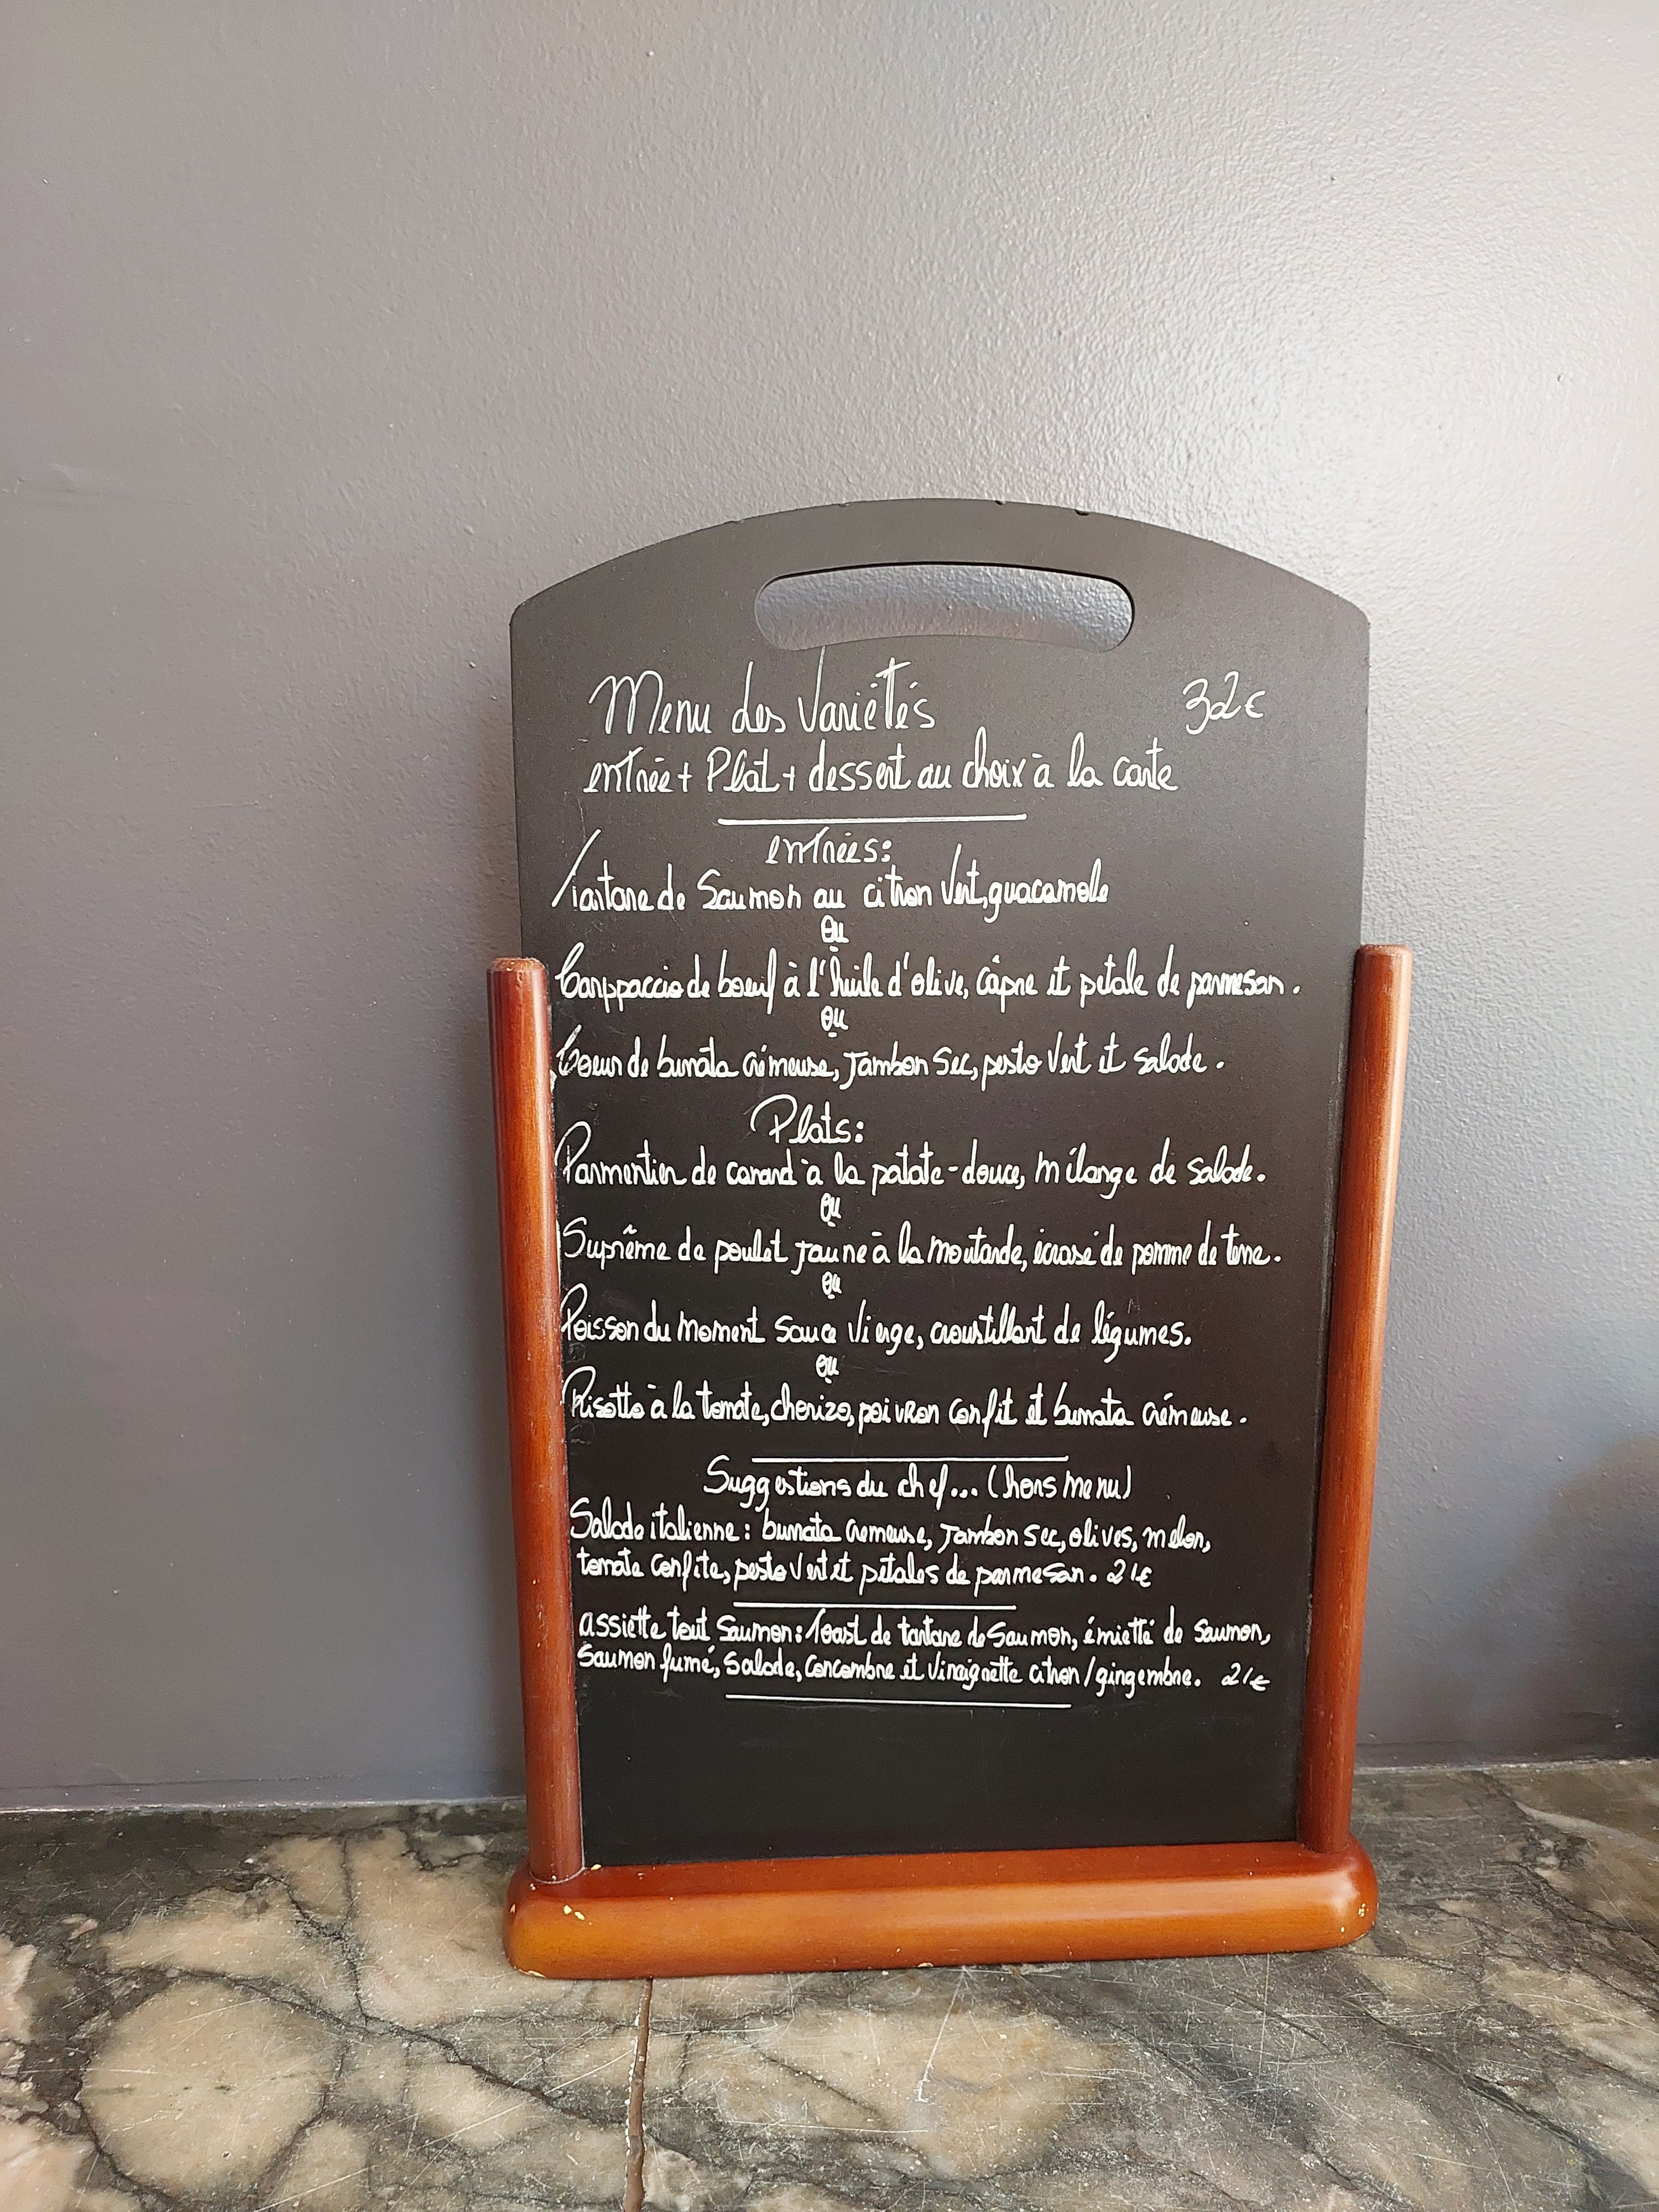 Menu des Variétés 32€
entrée + Plat + dessert au choix à la carte
entrées:
Tartare de Saumon au citron Vert, guacamole
ou
Carppaccio de boeuf à l'huile d'olive, câpre et pétale de parmesan.
ou
Coeur de burrata crémeuse, Jambon Sec, pesto Vert et Salade.
Plats:
Parmentier de canard à la patate-douce, mélange de Salade.
ou
Suprême de poulet Jaune à la moutarde, écrasé de pomme de terre.
ou
Poisson du moment Sauce Vierge, croustillant de légumes.
ou
Risotto à la tomate, chorizo, poivron confit et burrata crémeuse.
Suggestions du chef... (hors menu)
Salade italienne : burrata cremeuse, Jambon Sec, olives, melon,
tomate confite, pesto Vert et pétales de parmesan. 21€
assiette tout Saumon: Toast de tartare de Saumon, émietté de saumon,
Saumon fumé, Salade, Concombre et Vinaigrette citron/gingembre. 21€